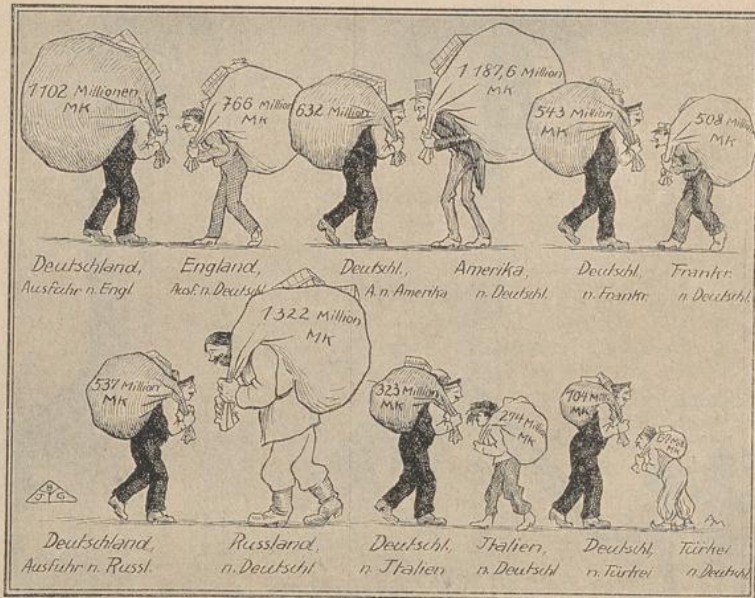 1102 Millionen
MK
766 Million
MK
632 Million
1187,6 Million
MK
543 Million
MK
508 Mill
MK
Deutschland,
Ausfuhr n. Engl.
England,
Ausf. n. Deutschl.
Deutschl.,
A. n. Amerika
Amerika,
n. Deutschl.
Deutschl,
n. Frankr.
Frankr.
n. Deutschl.
537 Million
MK
1322 Million
MK
323 Million
MK
274 Million
MK
104 Milli
MK
MK
Deutschland,
Ausfuhr n. Russl.
Russland,
n. Deutschl
Deutschl.,
n. Jtalien
Jtalien,
n. Deutschl
Deutschl,
n. Türkei
Türkei
n. Deutschl